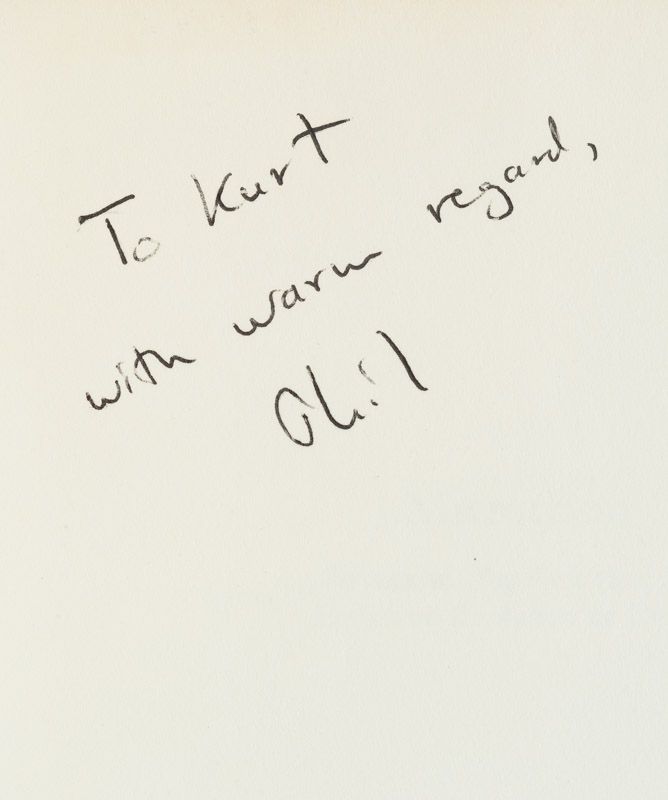 To Kurt
with warm regard,
Phil